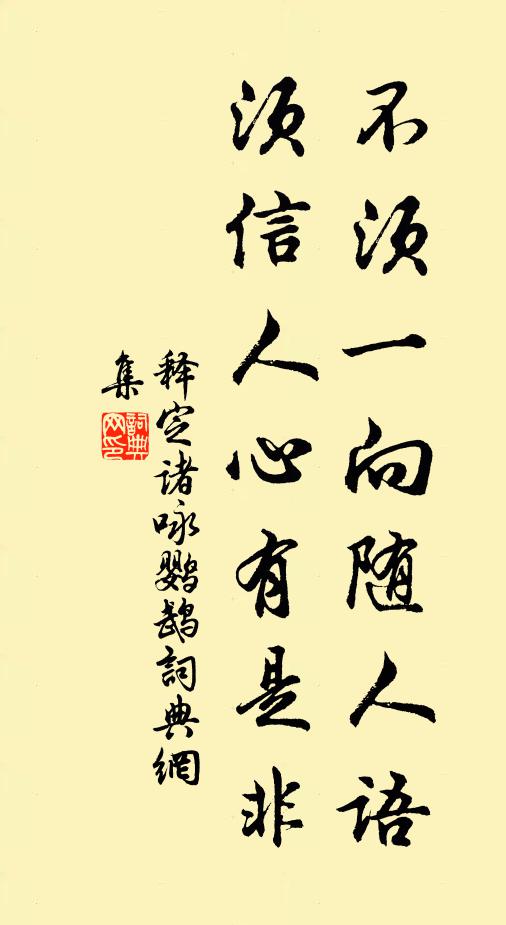 不须一向随人语
须信人心有是非
释定诸咏鹦鹉詞典網
集
詞典网印